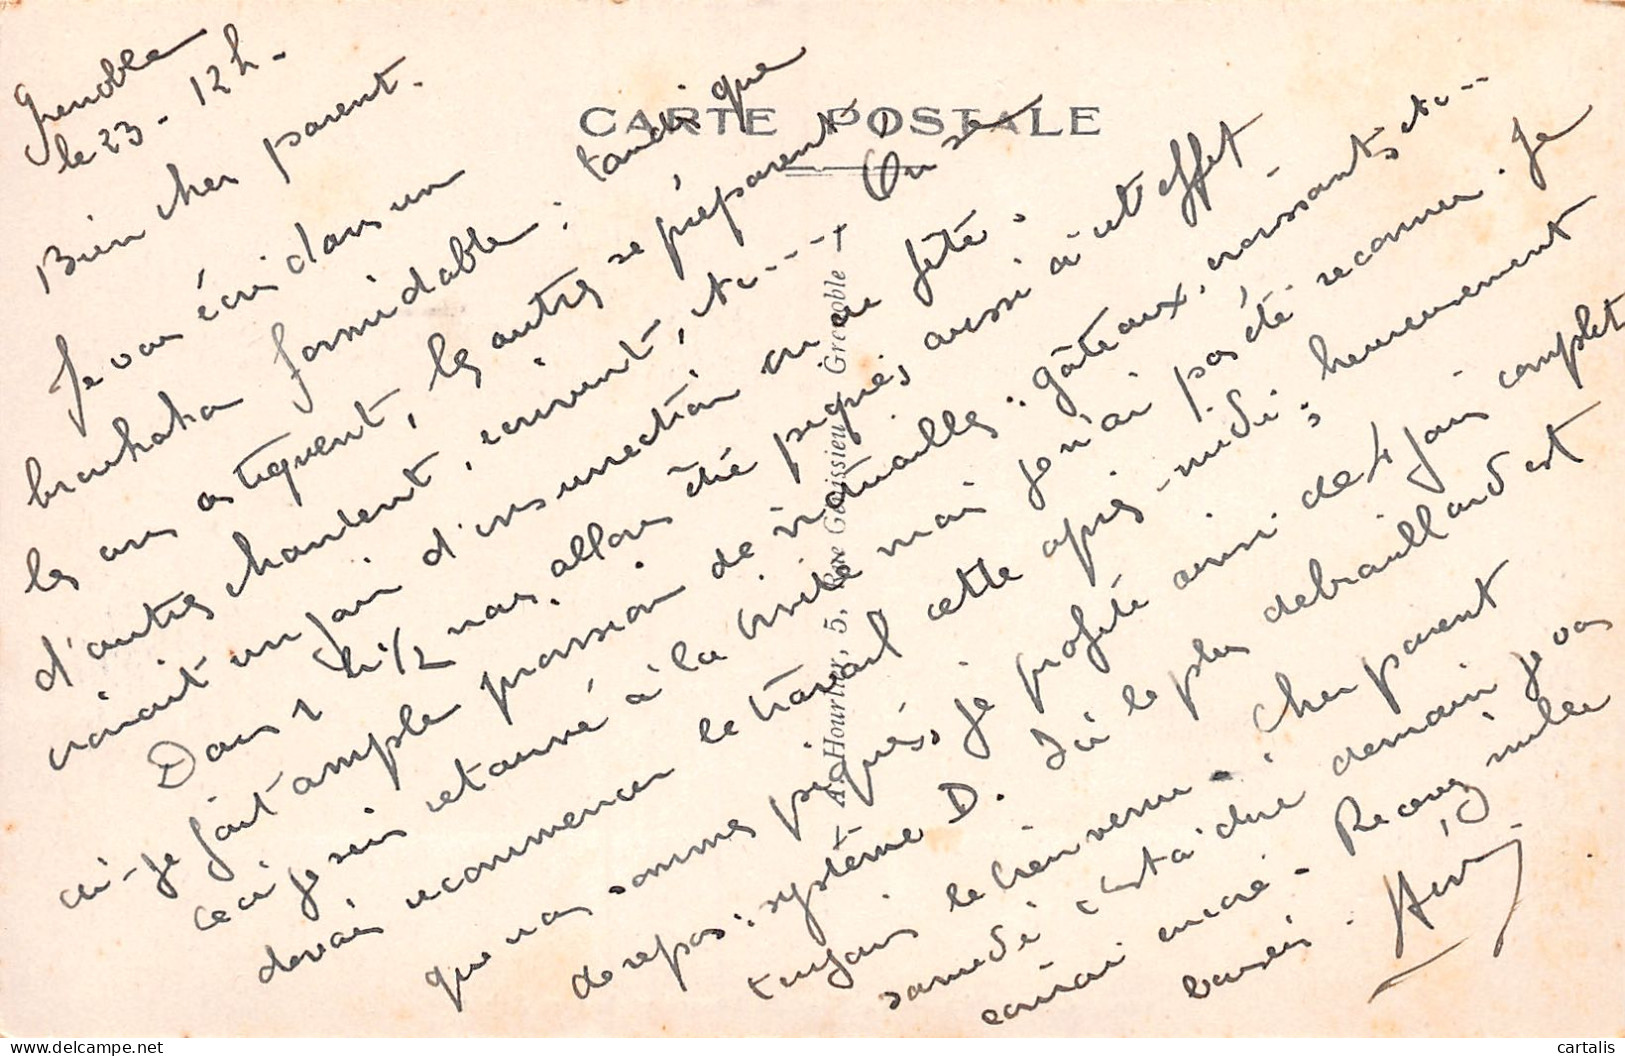 CARTE POSTALE
A. Hourlier, 5, Rue Génissieu, Grenoble
Grenoble
le 23 - 12 h -
Bien cher parent.
Je vous écris dans un
brouhaha formidable : tandis que
les uns astiquent, les autres se préparent,
d'autres chantent, écrivent, etc---- On se
croirait un jour d'insurrection ou de fête.
Dans 1 h 1/2 nous allons être piqués aussi à cet effet
ai-je fait ample provision de victuailles : gâteaux, croissants, etc---
ceci je suis retourné à la visite mais je n'ai pas été reconnu. Je
devais recommencer le travail cette après-midi ; heureusement
que nous sommes piqués, je profite ainsi de 4 jours complet
de repos : système D. Ici le plus débrouillard est
toujours le bienvenu - Cher parent
samedi c'est à dire demain je vous
écrirai encore - Recevez mille
baisers.
cartalis